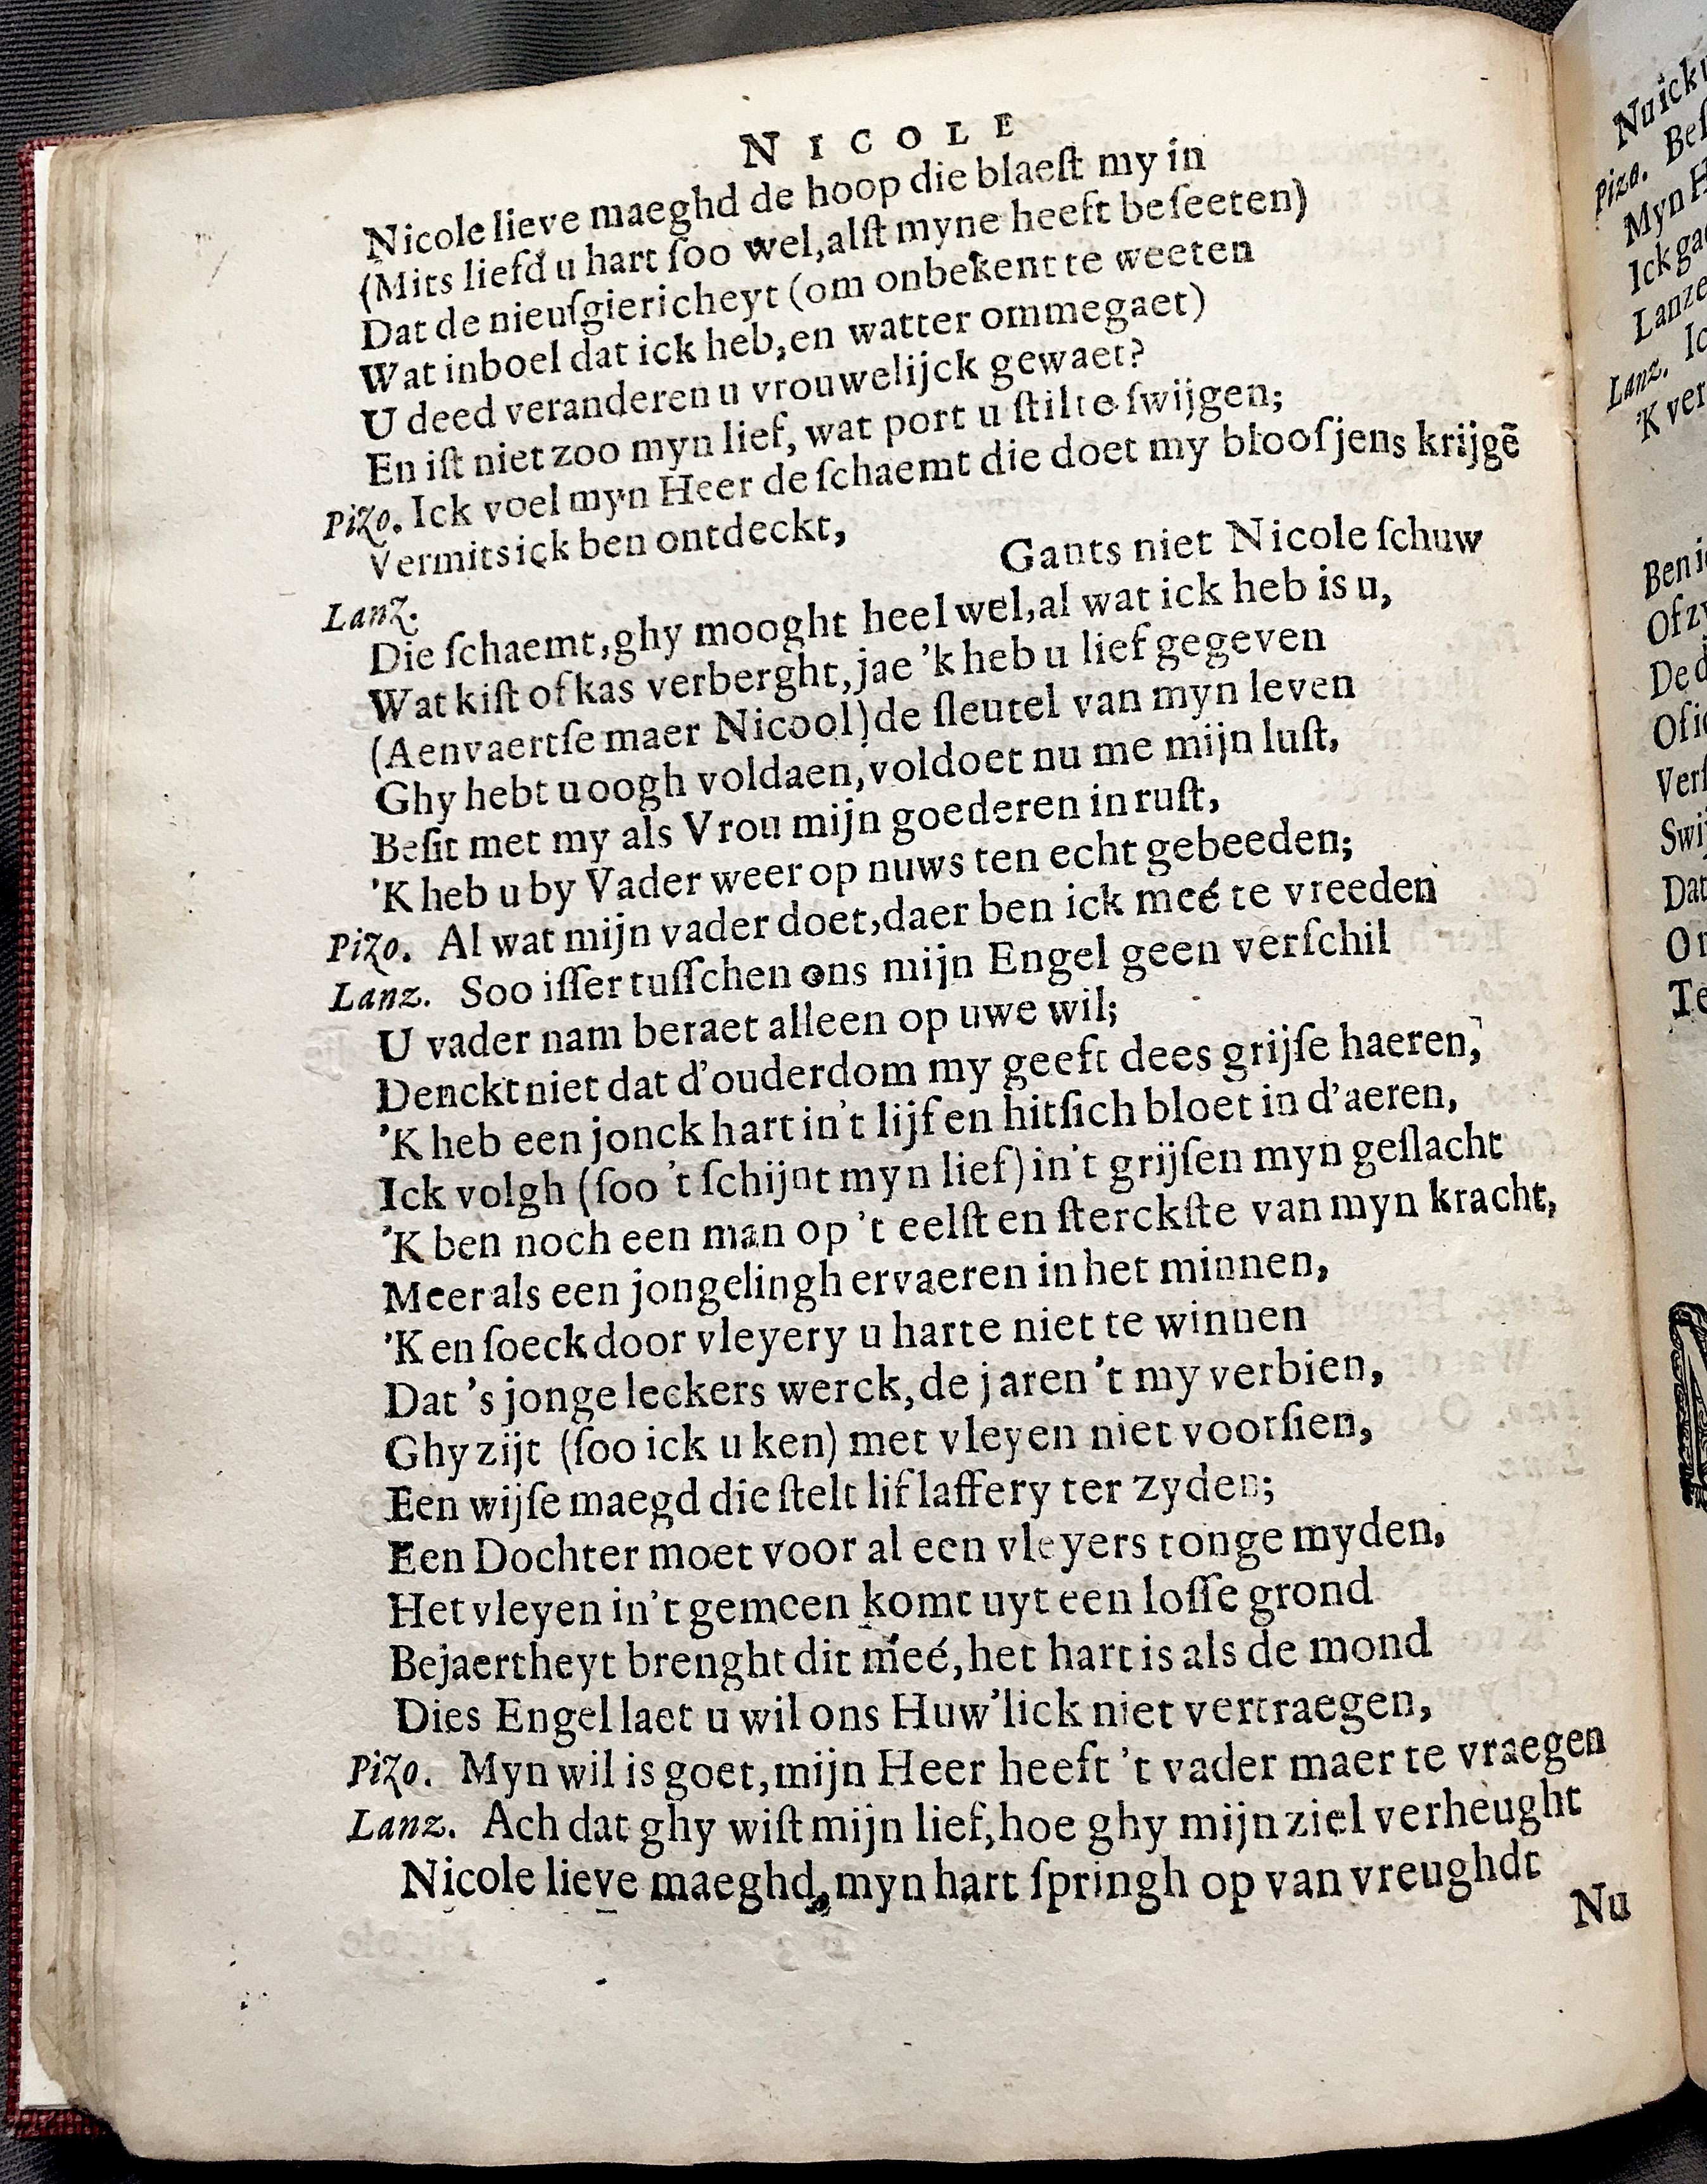 NICOLE
Nicole lieve maeghd de hoop die blaeſt my in
(Mits liefd u hart ſoo wel, alſt myne heeft beſeeten)
Dat de nieuſgiericheyt (om onbekent te weeten
Wat inboel dat ick heb, en watter ommegaet)
U deed veranderen u vrouwelijck gewaet?
En iſt niet zoo myn lief, wat port u ſtilte ſwijgen;
Pizo. Ick voel myn Heer de ſchaemt die doet my blooſjens krijgẽ
Vermits ick ben ontdeckt,
Gants niet Nicole ſchuw
Lanz.
Die ſchaemt, ghy mooght heel wel, al wat ick heb is u,
Wat kiſt of kas verberght, jae 'k heb u lief gegeven
(Aenvaertſe maer Nicool) de ſleutel van myn leven
Ghy hebt u oogh voldaen, voldoet nu me mijn luſt,
Beſit met my als Vrou mijn goederen in ruſt,
'K heb u by Vader weer op nuws ten echt gebeeden;
Pizo. Al wat mijn vader doet, daer ben ick meé te vreeden
Lanz. Soo iſſer tuſſchen ons mijn Engel geen verſchil
U vader nam beraet alleen op uwe wil;
Denckt niet dat d'ouderdom my geeft dees grijſe haeren,
'K heb een jonck hart in't lijf en hitſich bloet in d'aeren,
Ick volgh (ſoo 't ſchijnt myn lief) in't grijſen myn geſlacht
'K ben noch een man op 't eelſt en ſterckſte van myn kracht,
Meer als een jongelingh ervaeren in het minnen,
'K en ſoeck door vleyery u harte niet te winnen
Dat 's jonge leckers werck, de jaren 't my verbien,
Ghy zijt (ſoo ick u ken) met vleyen niet voorſien,
Een wijſe maegd die ſtelt liflaffery ter zyden;
Een Dochter moet voor al een vleyers tonge myden,
Het vleyen in't gemeen komt uyt een loſſe grond
Bejaertheyt brenght dit meé, het hart is als de mond
Dies Engel laet u wil ons Huw'lick niet vertraegen,
Pizo. Myn wil is goet, mijn Heer heeft 't vader maer te vraegen
Lanz. Ach dat ghy wiſt mijn lief, hoe ghy mijn ziel verheught
Nicole lieve maeghd, myn hart ſpringh op van vreughdt
Nu
Nu ick
Pizo.
Myn
Lanz.
'K ver
Dat